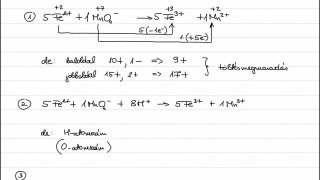 +2 +7 +3 +2
① 5 Fe²⁺ + 1 MnO₄⁻ → 5 Fe³⁺ + 1 Mn²⁺
5(-1e⁻)
1(+5e⁻)
de: baloldal 10+, 1- → 9+
jobboldal 15+, 2+ → 17+ } töltésmegmaradás
② 5 Fe²⁺ + 1 MnO₄⁻ + 8H⁺ → 5 Fe³⁺ + 1 Mn²⁺
de: H-atomszám
(O-atomszám)
③